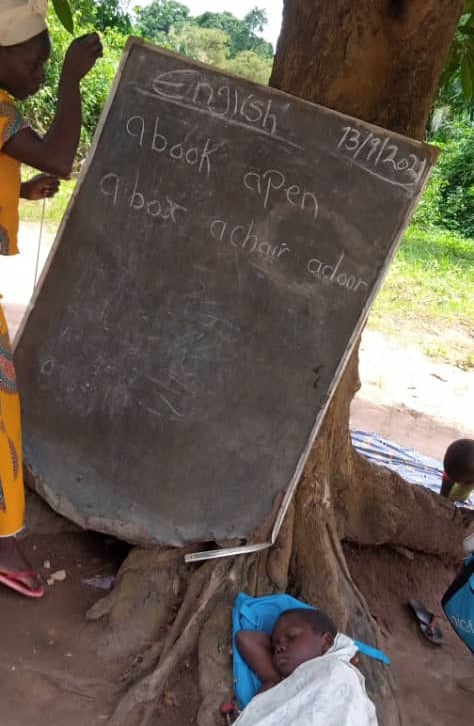 English
13/9/2021
abook apen
abox achair adoor